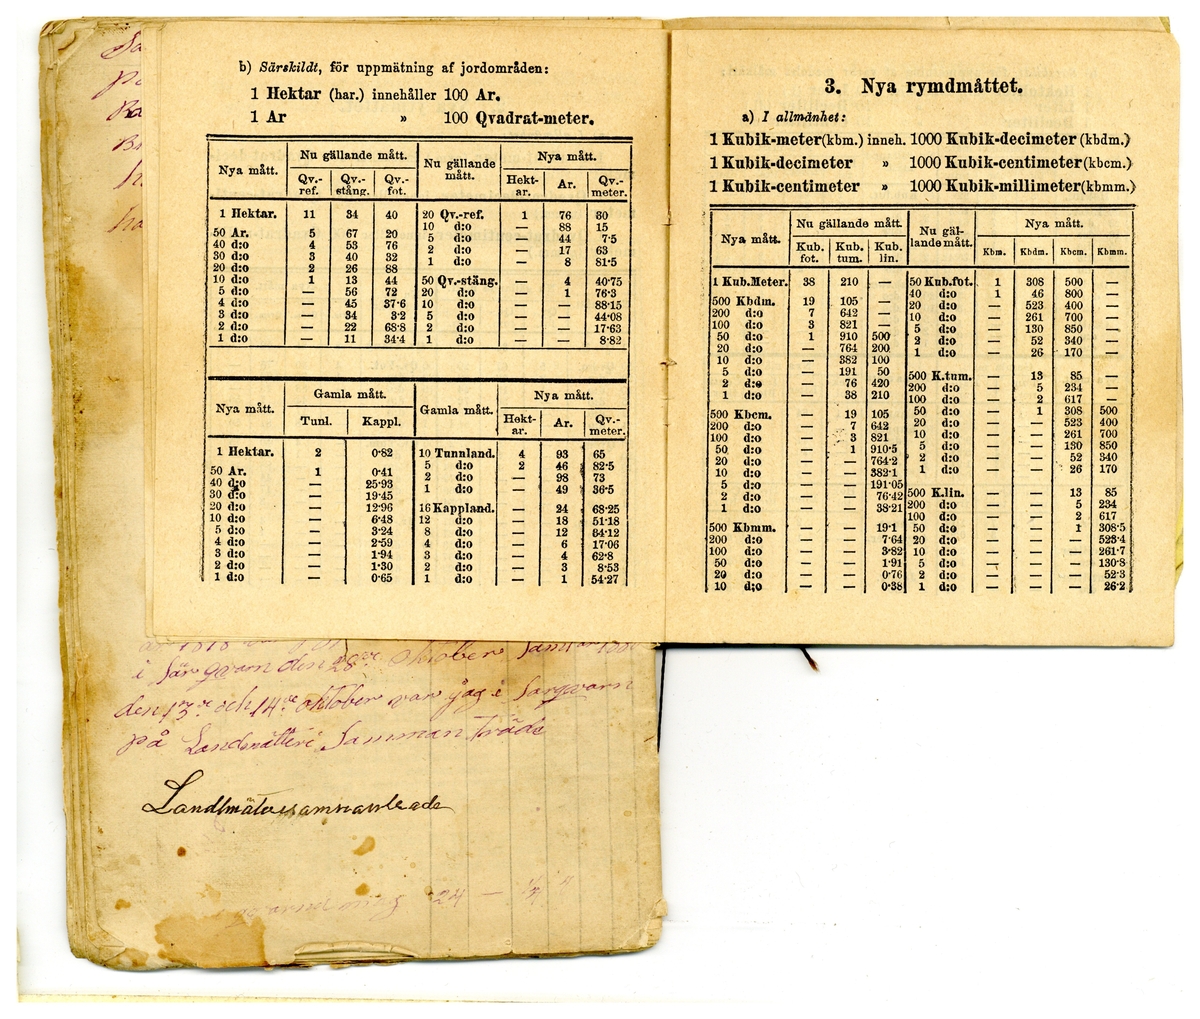 b) Särskildt, för uppmätning af jordområden:
1 Hektar (har.) innehåller 100 Ar.
1 Ar » 100 Qvadrat-meter.
Nya mått. Nu gällande mått. Nu gällande mått. Nya mått.
Qv.-ref. Qv.-stång. Qv.-fot. Hekt-ar. Ar. Qv.-meter.
1 Hektar. 11 34 40 20 Qv.-ref. 1 76 30
10 d:o — 88 15
50 Ar. 5 67 20 5 d:o — 44 7·5
40 d:o 4 53 76 2 d:o — 17 63
30 d:o 3 40 32 1 d:o — 8 81·5
20 d:o 2 26 88
10 d:o 1 13 44 50 Qv.-stång. — 4 40·75
5 d:o — 56 72 20 d:o — 1 76·3
4 d:o — 45 37·6 10 d:o — — 88·15
3 d:o — 34 3·2 5 d:o — — 44·08
2 d:o — 22 68·8 2 d:o — — 17·63
1 d:o — 11 34·4 1 d:o — — 8·82
Nya mått. Gamla mått. Gamla mått. Nya mått.
Tunl. Kappl. Hekt-ar. Ar. Qv.-meter.
1 Hektar. 2 0·82 10 Tunnland. 4 93 65
5 d:o 2 46 82·5
50 Ar. 1 0·41 2 d:o — 98 73
40 d:o — 25·93 1 d:o — 49 36·5
30 d:o — 19·45
20 d:o — 12·96 16 Kappland. — 24 68·25
10 d:o — 6·48 12 d:o — 18 51·18
5 d:o — 3·24 8 d:o — 12 34·12
4 d:o — 2·59 4 d:o — 6 17·06
3 d:o — 1·94 3 d:o — 4 62·8
2 d:o — 1·30 2 d:o — 3 8·53
1 d:o — 0·65 1 d:o — 1 54·27
3. Nya rymdmåttet.
a) I allmänhet:
1 Kubik-meter (kbm.) inneh. 1000 Kubik-decimeter (kbdm.)
1 Kubik-decimeter » 1000 Kubik-centimeter (kbcm.)
1 Kubik-centimeter » 1000 Kubik-millimeter (kbmm.)
Nya mått. Nu gällande mått. Nu gäl-lande mått. Nya mått.
Kub. fot. Kub. tum. Kub. lin. Kbm. Kbdm. Kbcm. Kbmm.
1 Kub.Meter. 38 210 — 50 Kub.fot. 1 308 500 —
40 d:o 1 46 800 —
500 Kbdm. 19 105 — 20 d:o — 523 400 —
200 d:o 7 642 — 10 d:o — 261 700 —
100 d:o 3 821 — 5 d:o — 130 850 —
50 d:o 1 910 500 2 d:o — 52 340 —
20 d:o — 764 200 1 d:o — 26 170 —
10 d:o — 382 100
5 d:o — 191 50 500 K.tum. — 13 85 —
2 d:o — 76 420 200 d:o — 5 234 —
1 d:o — 38 210 100 d:o — 2 617 —
500 Kbcm. — 19 105 50 d:o — 1 308 500
200 d:o — 7 642 20 d:o — — 523 400
100 d:o — 3 821 10 d:o — — 261 700
50 d:o — 1 910·5 5 d:o — — 130 850
20 d:o — — 764·2 2 d:o — — 52 340
10 d:o — — 382·1 1 d:o — — 26 170
5 d:o — — 191·05
2 d:o — — 76·42 500 K.lin. — — 13 85
1 d:o — — 38·21 200 d:o — — 5 234
100 d:o — — 2 617
500 Kbmm. — — 19·1 50 d:o — — 1 308·5
200 d:o — — 7·64 20 d:o — — — 523·4
100 d:o — — 3·82 10 d:o — — — 261·7
50 d:o — — 1·91 5 d:o — — — 130·8
20 d:o — — 0·76 2 d:o — — — 52·3
10 d:o — — 0·38 1 d:o — — — 26·2
i Särqvarn den 28de oktober
den 13de och 14de oktober var jag i Sarqvarn
på Landmätteri Samman träde
24 —